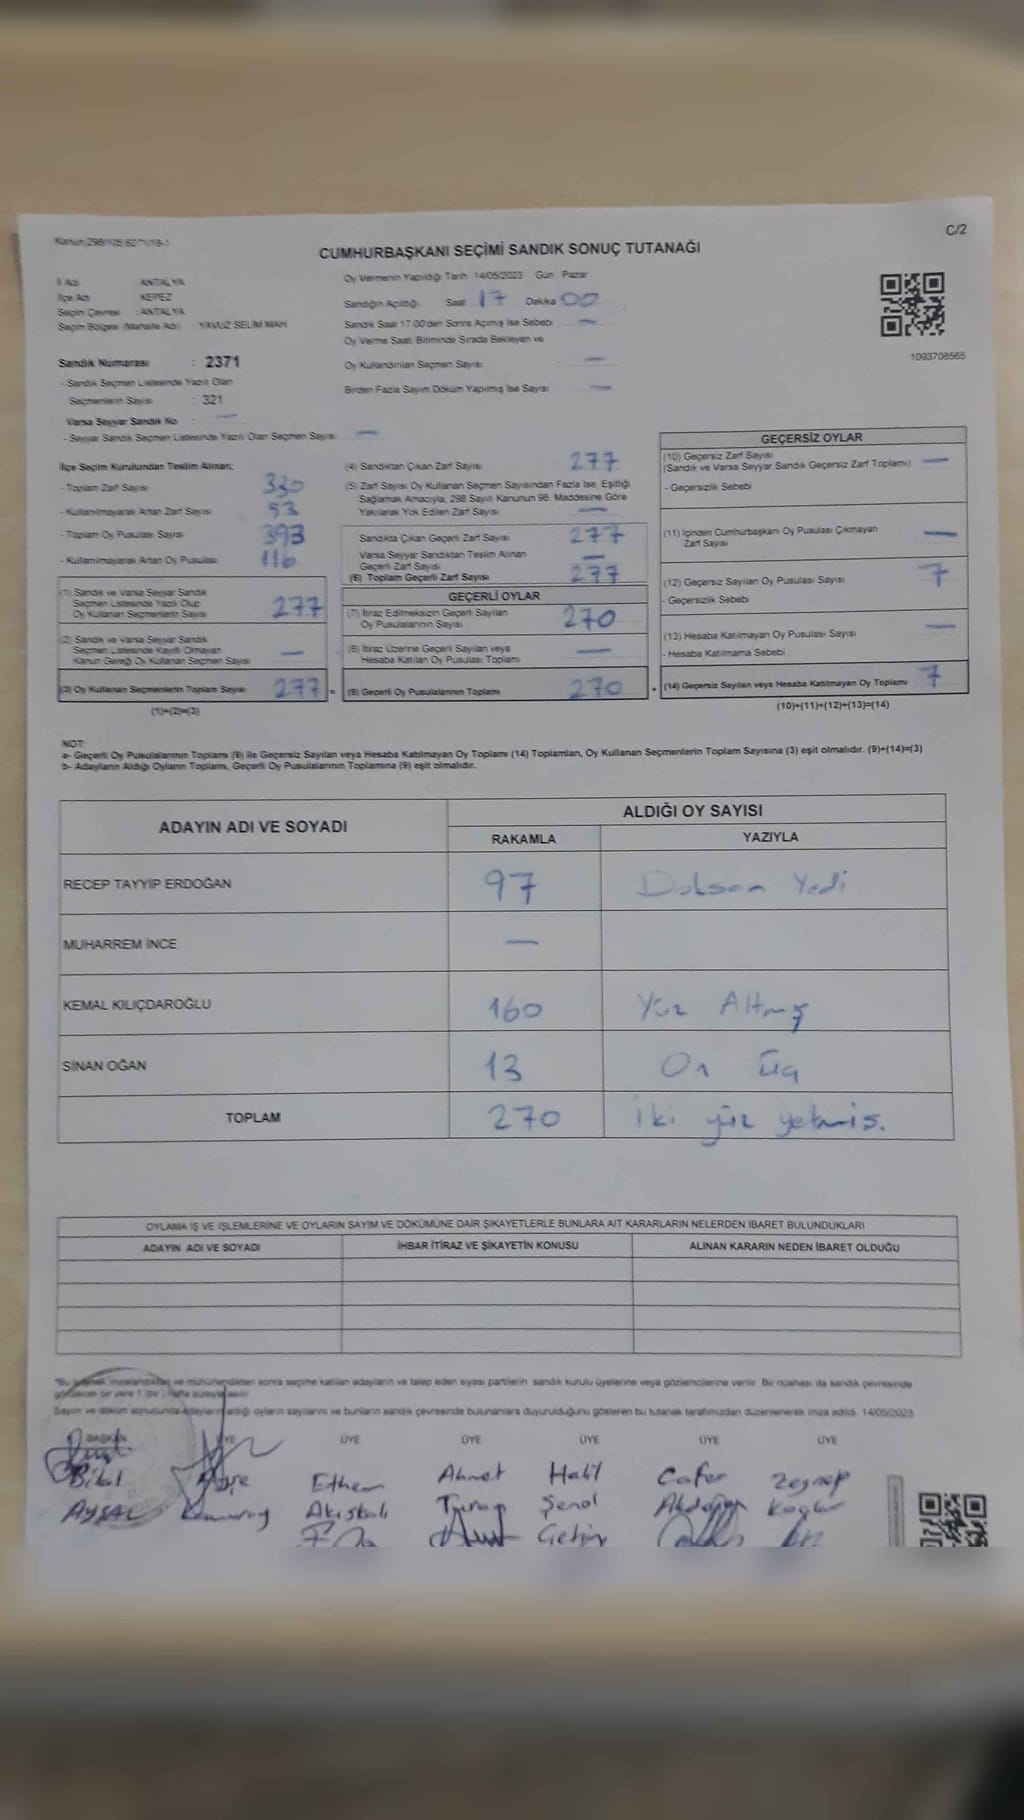 C/2
CUMHURBAŞKANI SEÇİMİ SANDIK SONUÇ TUTANAĞI
İl Adı : ANTALYA
İlçe Adı : KEPEZ
Seçim Çevresi : ANTALYA
Seçim Bölgesi (Mahalle Adı) : YAVUZ SELİM MAH.
Sandık Numarası : 2371
- Sandık Seçmen Listesinde Yazılı Olan
Seçmenlerin Sayısı : 321
Varsa Seyyar Sandık No : —
- Seyyar Sandık Seçmen Listesinde Yazılı Olan Seçmen Sayısı : —
Oy Vermenin Yapıldığı Tarih 14/05/2023 Gün Pazar
Sandığın Açıldığı Saat 17 Dakika 00
Sandık Saat 17:00'den Sonra Açılmış İse Sebebi —
Oy Verme Saati Bitiminde Sırada Bekleyen ve
Oy Kullandırılan Seçmen Sayısı —
Birden Fazla Sayım Döküm Yapılmış İse Sayısı —
1093708565
İlçe Seçim Kurulundan Teslim Alınan;
- Toplam Zarf Sayısı 330
- Kullanılmayarak Artan Zarf Sayısı 53
- Toplam Oy Pusulası Sayısı 393
- Kullanılmayarak Artan Oy Pusulası 116
(1) Sandık ve Varsa Seyyar Sandık
Seçmen Listesinde Yazılı Olup
Oy Kullanan Seçmenlerin Sayısı 277
(2) Sandık ve Varsa Seyyar Sandık
Seçmen Listesinde Kayıtlı Olmayan
Kanun Gereği Oy Kullanan Seçmen Sayısı —
(3) Oy Kullanan Seçmenlerin Toplam Sayısı 277 =
(1)+(2)=(3)
(4) Sandıktan Çıkan Zarf Sayısı 277
(5) Zarf Sayısı Oy Kullanan Seçmen Sayısından Fazla İse, Eşitliği
Sağlamak Amacıyla, 298 Sayılı Kanunun 98. Maddesine Göre
Yakılarak Yok Edilen Zarf Sayısı —
Sandıkta Çıkan Geçerli Zarf Sayısı 277
Varsa Seyyar Sandıktan Teslim Alınan
Geçerli Zarf Sayısı —
(6) Toplam Geçerli Zarf Sayısı 277
GEÇERLİ OYLAR
(7) İtiraz Edilmeksizin Geçerli Sayılan
Oy Pusulalarının Sayısı 270
(8) İtiraz Üzerine Geçerli Sayılan veya
Hesaba Katılan Oy Pusulası Toplamı —
(9) Geçerli Oy Pusulalarının Toplamı 270 +
GEÇERSİZ OYLAR
(10) Geçersiz Zarf Sayısı
(Sandık ve Varsa Seyyar Sandık Geçersiz Zarf Toplamı) —
- Geçersizlik Sebebi
(11) İçinden Cumhurbaşkanı Oy Pusulası Çıkmayan
Zarf Sayısı —
(12) Geçersiz Sayılan Oy Pusulası Sayısı 7
- Geçersizlik Sebebi
(13) Hesaba Katılmayan Oy Pusulası Sayısı —
- Hesaba Katılmama Sebebi
(14) Geçersiz Sayılan veya Hesaba Katılmayan Oy Toplamı 7
(10)+(11)+(12)+(13)=(14)
NOT:
a- Geçerli Oy Pusulalarının Toplamı (9) ile Geçersiz Sayılan veya Hesaba Katılmayan Oy Toplamı (14) Toplamları, Oy Kullanan Seçmenlerin Toplam Sayısına (3) eşit olmalıdır. (9)+(14)=(3)
b- Adayların Aldığı Oyların Toplamı, Geçerli Oy Pusulalarının Toplamına (9) eşit olmalıdır.
ADAYIN ADI VE SOYADI
ALDIĞI OY SAYISI
RAKAMLA YAZIYLA
RECEP TAYYİP ERDOĞAN 97 Doksan Yedi
MUHARREM İNCE —
KEMAL KILIÇDAROĞLU 160 Yüz Altmış
SİNAN OĞAN 13 On Üç
TOPLAM 270 İki yüz yetmis.
OYLAMA İŞ VE İŞLEMLERİNE VE OYLARIN SAYIM VE DÖKÜMÜNE DAİR ŞİKAYETLERLE BUNLARA AİT KARARLARIN NELERDEN İBARET BULUNDUKLARI
ADAYIN ADI VE SOYADI İHBAR İTİRAZ VE ŞİKAYETİN KONUSU ALINAN KARARIN NEDEN İBARET OLDUĞU
ve mühürlendikten sonra seçime katılan adayların ve talep eden siyasi partilerin sandık kurulu üyelerine veya gözlemcilerine verilir. Bir nüshası da sandık çevresinde
görülecek bir yere 1 (bir) hafta süreyle asılır.
Sayım ve döküm sonucunda adayların aldığı oyların sayılarını ve bunların sandık çevresinde bulunanlara duyurulduğunu gösteren bu tutanak tarafımızdan düzenlenerek imza edildi. 14/05/2023
BAŞKAN ÜYE ÜYE ÜYE ÜYE ÜYE ÜYE
Ethem Ahmet Halil Cafer Zeynep
AYŞAL Şenol
Çetin